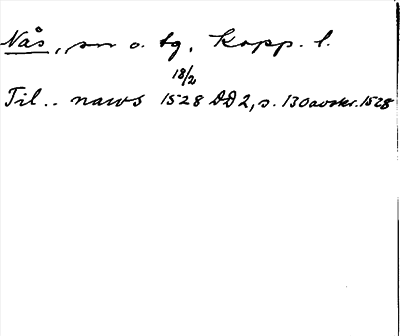 Nås, sn o. tg. Kopp. l.
18/2
Til.. naws 1528 DD2, s. 130 avskr. 1528